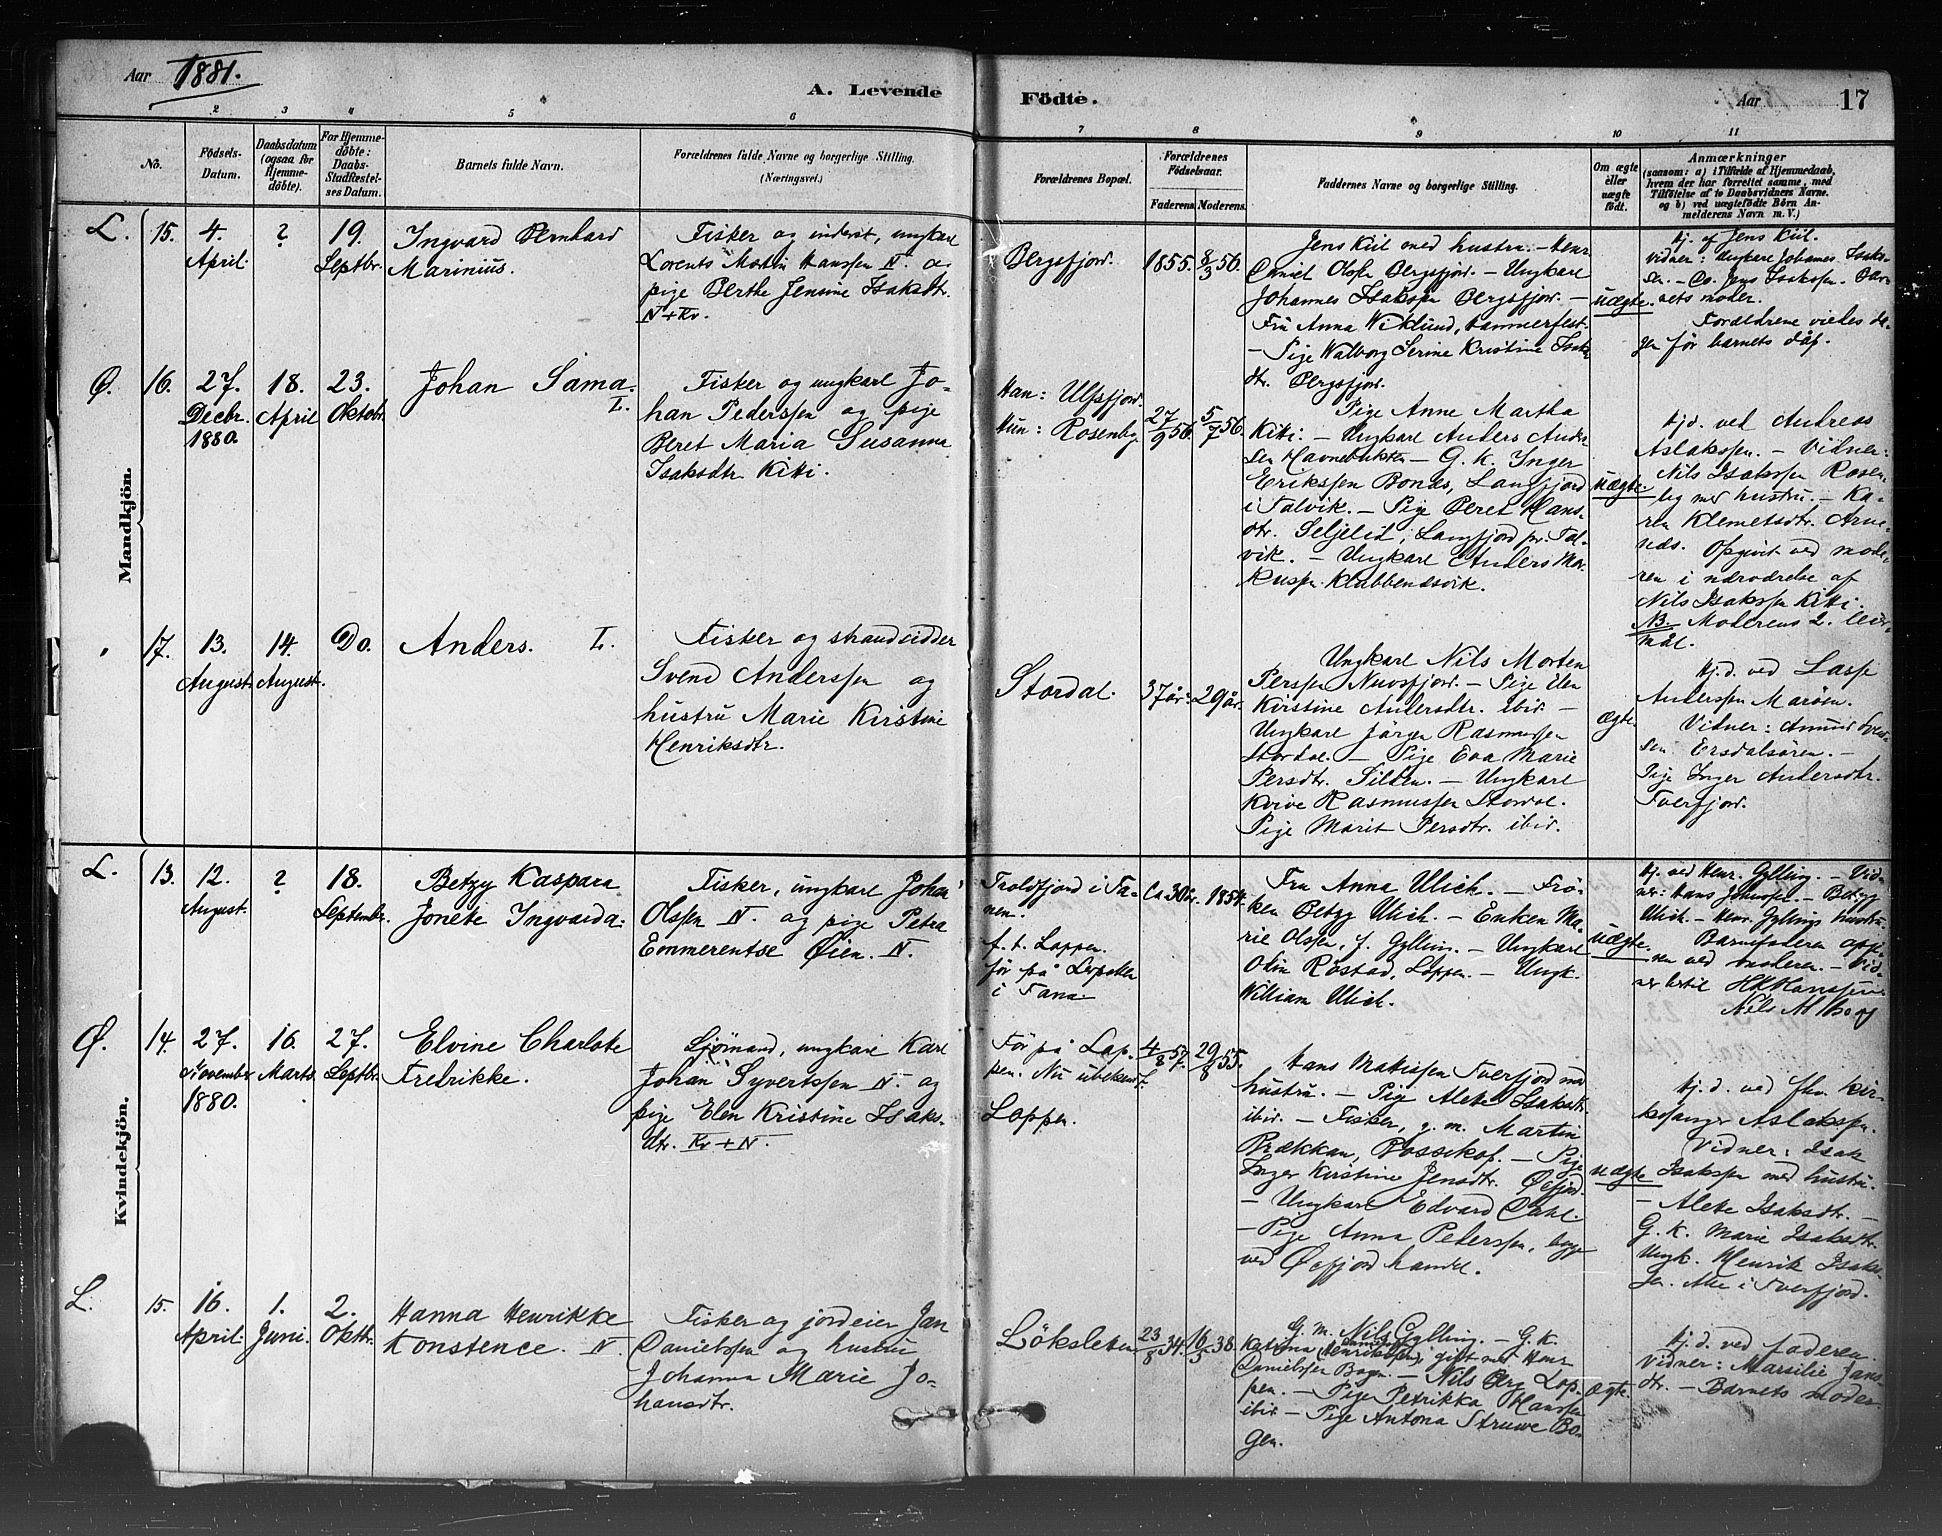 Aar 1881.
A. Levende Födte.
Aar 17
2 3 4 5 6 7 8 9 10 11
No.
Födsels-Datum.
Daabsdatum (ogsaa for Hjemme-döbte).
For Hjemme-döbte: Daabs-Stadfæstel-ses Datum.
Barnets fulde Navn.
Forældrenes fulde Navne og borgerlige Stilling. (Næringsvei.)
Forældrenes Bopæl.
Forældrenes Födselsaar.
Faderens. Moderens.
Faddernes Navne og borgerlige Stilling.
Om ægte eller uægte födt.
Anmærkninger
(saasom: a) i Tilfælde af Hjemmedaab, hvem der har forrettet samme, med Tilföielse af to Daabsvidners Navne. og b) ved uægtefödte Börn An-melderens Navn m. V.)
Mandkjön.
L. 15. 4. April ? 19. Septbr.
Ingvard Bernhard
Marinius.
Fisker og inderst, ungkarl
Lorents Martin Hanssen N. og
pige Berthe Jensine Isaksdtr.
N + Kv.
Bergsfjord. 1855. 8/3 56.
Jens Kiil med hustru. – Henr.
Daniel Olsen Bergsfjord. – Ungkarl
Johannes Isaksen Bergsfjord. –
Fru Anna Wiklund, Hammerfest
– Pige Walborg Serine Kristine Isaks
dtr. Bergsfjord.
uægte.
Hj. af Jens Kiil.
Vidner: Ungkarl Johannes Isak-
sen. – Do. Jens Isaksen. Bar-
nets moder.
Forældrene viedes da-
gen för barnets dåp.
Ø. 16. 27. Decbr. 1880. 18. April 23. Oktobr.
Johan Sama.
L.
Fisker og ungkarl Jo-
han Pederssen og pige
Beret Maria Susanna
Isaksdtr Kitti.
Han: Ulfsfjord.
Hun: Rosenby. 27/9 56. 5/7 56.
Pige Anne Martha
Kitti. – Ungkarl Anders Anders-
sen Havnebukten – G. k. Inger
Erikssen Bonas, Langfjord
i Talvik. – Pige Beret Hans-
dtr. Seljelid, Langfjord pr. Tal-
vik. – Ungkarl Anders Mar-
kussen Klubbenesvik.
uægte.
Hjd. ved Andreas
Aslakssen. – Vidner:
Nils Isakssen Rosen-
by med hustru. – Ka-
ren Klemetsdtr. Arne-
næs. Opgivet ved mode-
ren i nærværelse af
Nils Isakssen Kitti.
NB. Moderens 2. leier-
mål.
17. 13. August. 14. August. Do.
Anders. L.
Fisker og strandsidder
Svend Anderssen og
hustru Marie Kirstine
Henriksdtr.
Stordal. 37 år. 29 år.
Ungkarl Nils Morten
Perssen Nuvsfjord. – Pige Elen
Kirstine Andersdtr. ibid. –
Ungkarl Jörgen Rasmussen
Stordal. – Pige Eva Marie
Persdtr. Silden. – Ungkarl
Kvive Rasmussen Stordal.
Pige Marit Persdtr. ibid.
ægte.
Hj.d. ved Lasse
Anderssen Maröen.
Vidner: Amund
sen Ersdalsören. –
Pige Inger Andersdtr.
Tverfjord.
Kvindekjön.
L. 13. 12. August. ? 18. Septembr.
Betzy Kaspara
Jonette Ingvarda.
Fisker, ungkarl Johan
Olssen N. og pige Petra
Emmerentse Øien. N.
Troldfjord i Ta-
nen.
f. t. Loppen.
för på
i Tana
Ca 30 år. 1854.
Fru Anna Ulich. – Frö-
ken Betzy Ulich. – Enken Ma-
rie Olssen, f. Gylling. – Ungkarl
Olin Röstad, Loppen. – Ungk.
William Ulich.
uægte.
Hj. ved Henr. Gylling. – Vid-
ner: Hans Johnsen. – Betzy
Ulich. – Henr. Gyllings hustru.
Barnefaderen opgi-
ven ved moderen. – Vid-
ner hertil H K Hanssen
Nils M.
Ø. 14. 27. November 1880. 16. Marts 27. Septbr.
Elvine Charlotte
Fredrikke.
Sjömand, ungkarl Karl
Johan Syvertssen N. og
pige Elen Kristine Isaks-
dtr. Kv + N.
Før på Lop-
pen. Nu ubekendt.
Loppen. 4/8 57. 29/8 55.
Hans Mathisen Tverfjord med
hustru. – Pige Alete Isaksdtr.
ibid. – Fisker, g. m. Martin
Brækkan, Bossekop. – Pige
Inger Kirstine Jensdtr. Øxfjord.
– Ungkarl Edvard Dahl.
– Pige Anna Pederssen, begge
ved Øxfjord handel.
uægte
Hj. d. ved fhv. kir-
kesanger Aslakssen.
Vidner: Isak
Isakssen med hustru
– Alete Isaksdtr. –
G. k. Marie Isaksdtr.
Ungk. Henrik Isaks-
sen. Alle i Tverfjord.
L. 15. 16. April. 1. Juni. 2. Oktbr.
Hanna Henrikke
Konstence. N.
Fisker og jordeier Jan
Danielssen og hustru
Johanna Marie Jo-
hansdtr.
Löksletten. 23/8 34. 16/3 38.
G. m. Nils Gylling. – G. k.
Katrina (Henrikssen), gift med Henr
Danielssen Bogen. – Nils Berg Lop-
pen. – Pige Petrikka Hanssen
ibid. – Pige Antona Struwe Bo-
gen.
ægte.
Hj. d. ved faderen.
Vidner: Marsilie Jans-
dtr. – Barnets moder.